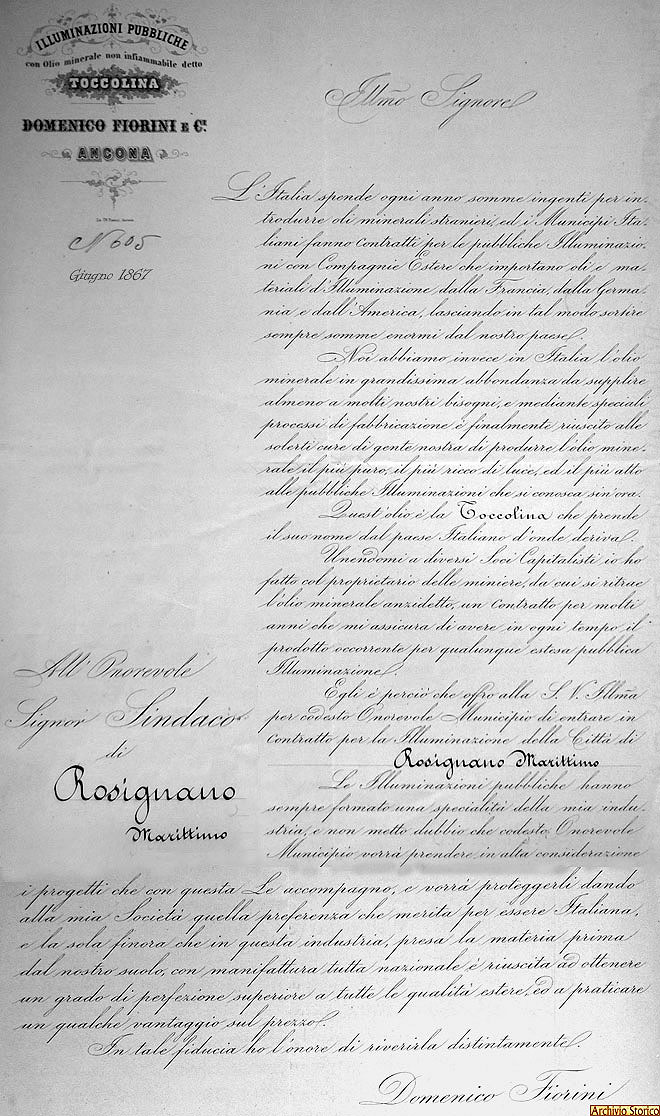 ILLUMINAZIONI PUBBLICHE
con Olio minerale non infiammabile detto
TOCCOLINA
DOMENICO FIORINI E C.
ANCONA
N 605
Giugno 1867
Illmo Signore
L'Italia spende ogni anno somme ingenti per in-
trodurre oli minerali stranieri, ed i Municipi Ita-
liani fanno Contratti per le pubbliche Illuminazio-
ni con Compagnie Estere che importano oli e ma-
teriali d'Illuminazione dalla Francia, dalla Germa-
nia e dall'America, lasciando in tal modo sortire
sempre somme enormi dal nostro paese.
Noi abbiamo invece in Italia l'olio
minerale in grandissima abbondanza da supplire
almeno a molti nostri bisogni, e mediante speciali
processi di fabbricazione è finalmente riuscito alle
solerti cure di gente nostra di produrre l'olio mine-
rale il più puro, il più ricco di luce, ed il più atto
alle pubbliche Illuminazioni che si conosca sin'ora.
Quest'olio è la Toccolina che prende
il suo nome dal paese Italiano d'onde deriva.
Unendomi a diversi Soci Capitalisti io ho
fatto col proprietario delle miniere, da cui si ritrae
l'olio minerale anzidetto, un Contratto per molti
anni che mi assicura di avere in ogni tempo il
prodotto occorrente per qualunque estesa pubblica
Illuminazione.
Egli è perciò che offro alla S. V. Illma
per codesto Onorevole Municipio di entrare in
Contratto per la Illuminazione della Città di
Rosignano Marittimo
All' Onorevole
Signor Sindaco
di
Rosignano
Marittimo
Le Illuminazioni pubbliche hanno
sempre formato una specialità della mia indu-
stria, e non metto dubbio che codesto Onorevole
Municipio vorrà prendere in alta considerazione
i progetti che con questa Le accompagno, e vorrà proteggerli dando
alla mia Società quella preferenza che merita per essere Italiana,
e la sola finora che in questa industria, presa la materia prima
dal nostro suolo, con manifattura tutta nazionale è riuscita ad ottenere
un grado di perfezione superiore a tutte le qualità estere, ed a praticare
un qualche vantaggio sul prezzo.
In tale fiducia ho l'onore di riverirla distintamente.
Domenico Fiorini
Archivio Storico